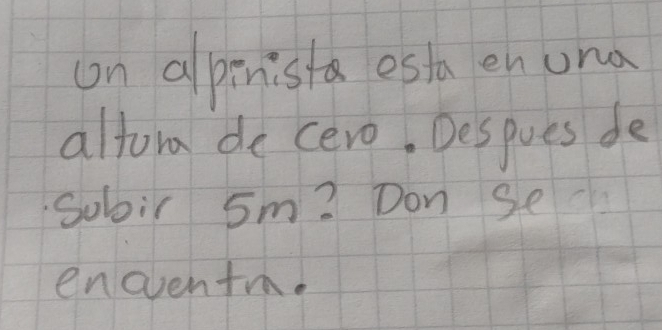 Un alpinista esta en una
altura de cero. Despues de
subir 5m? Don se
encuentra.